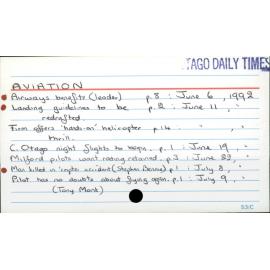 TAGO DAILY TIMES
AVIATION
Airways benefits (leader) p.8 : June 6, 1992
Landing guidelines to be p.2 : June 11, "
redrafted.
Firm offers 'hands-on' helicopter p.14 " , "
thrill.
C. Otago night flights to begin. p.1 : June 19, "
Milford pilots want rating retained. p.3 : June 23, "
Man killed in 'copter accident (Stephen) p.1 : July 8, "
Pilot has no doubts about flying again. p.1 : July 9, "
(Tony Monk)
53/C